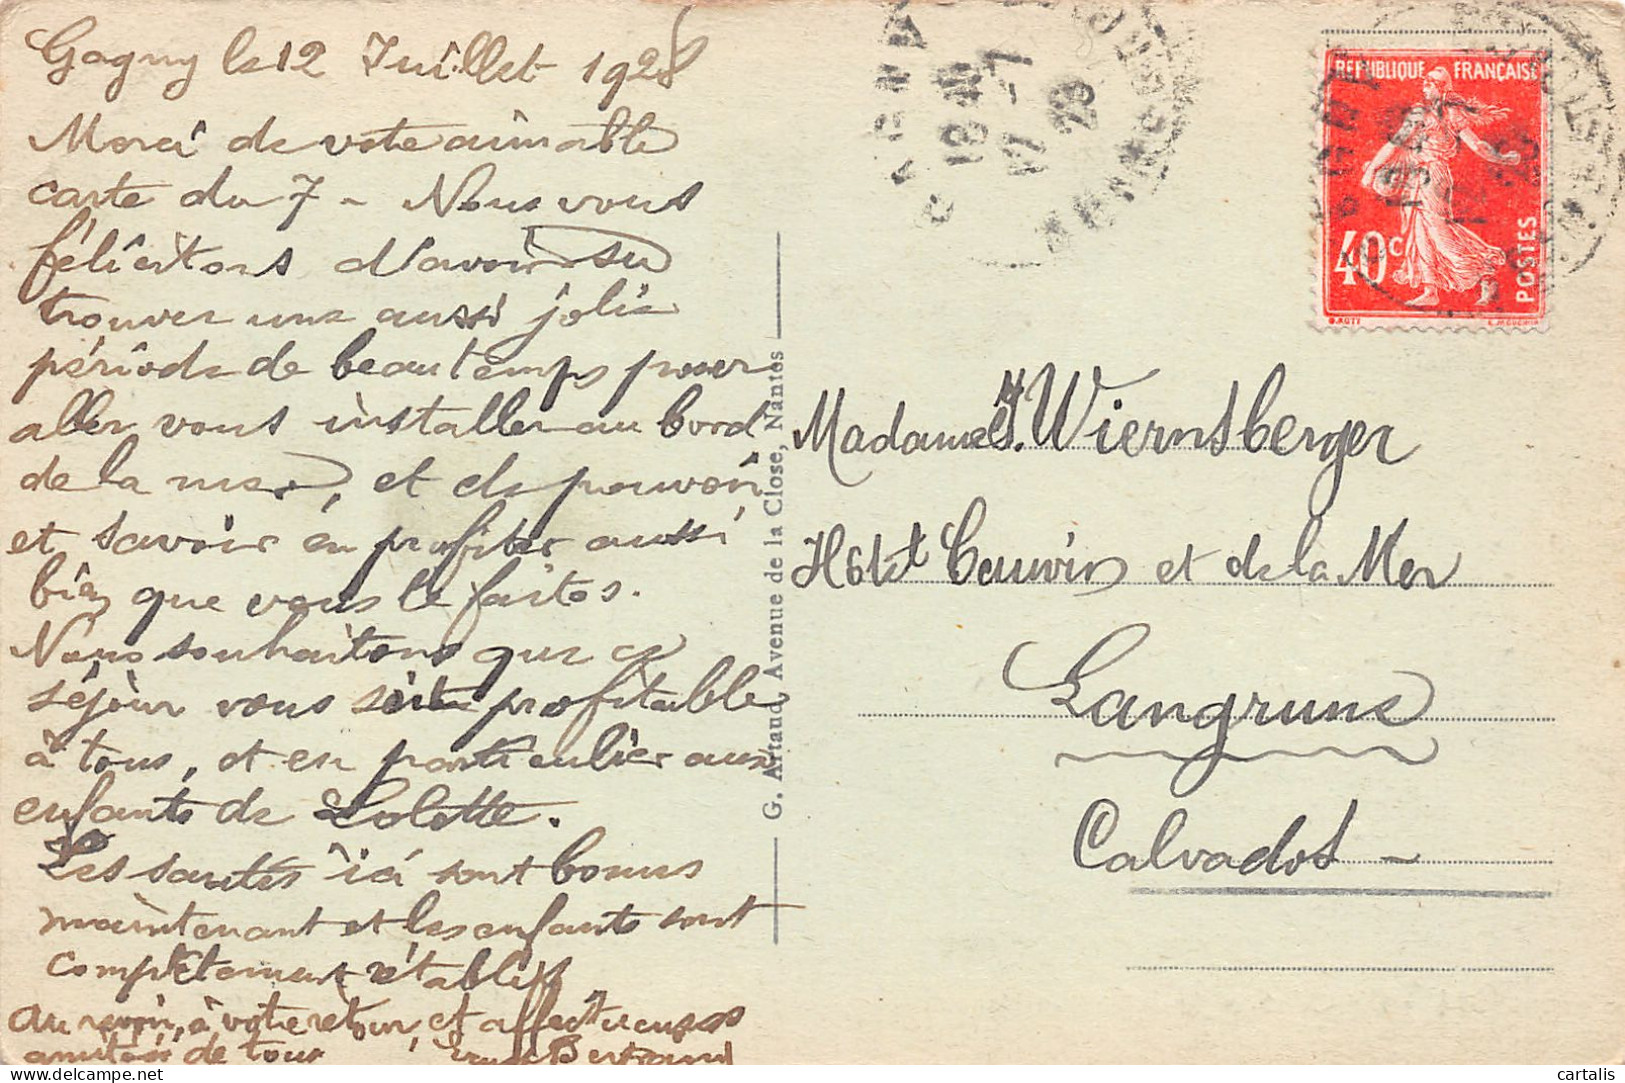 Gagny le 12 Juillet 1928
Merci de votre aimable
carte du 7 - Nous vous
félicitons d'avoir su
trouver une aussi jolie
période de beau temps pour
aller vous installer au bord
de la mer, et de pouvoir
et savoir en profiter aussi
bien que vous le faites.
Nous souhaitons que ce
séjour vous soit profitable
à tous, et en particulier aux
enfants de Lolotte.
Les santés ici sont bonnes
maintenant et les enfants sont
complètement rétablis
au revoir, à votre retour, et affectueuses
amitiés de tous Bertrand
G. Artaud, Avenue de la Close, Nantes
GAGNY
REPUBLIQUE FRANÇAISE
40c
POSTES
O. ROTY
L. MOUCHON
Madame J. Wiernsberger
Hôtel Cauvin et de la Mer
Langrune
Calvados -
cartalis